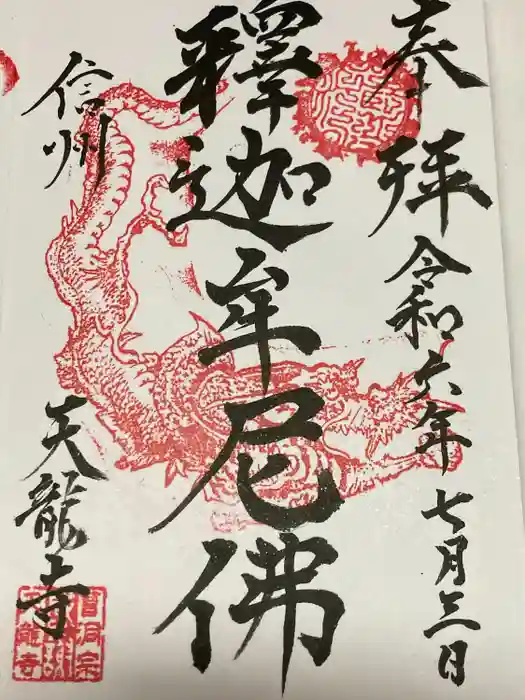 奉拝
令和六年七月三日
釋迦牟尼佛
信州
天龍寺
曹洞宗
天龍寺